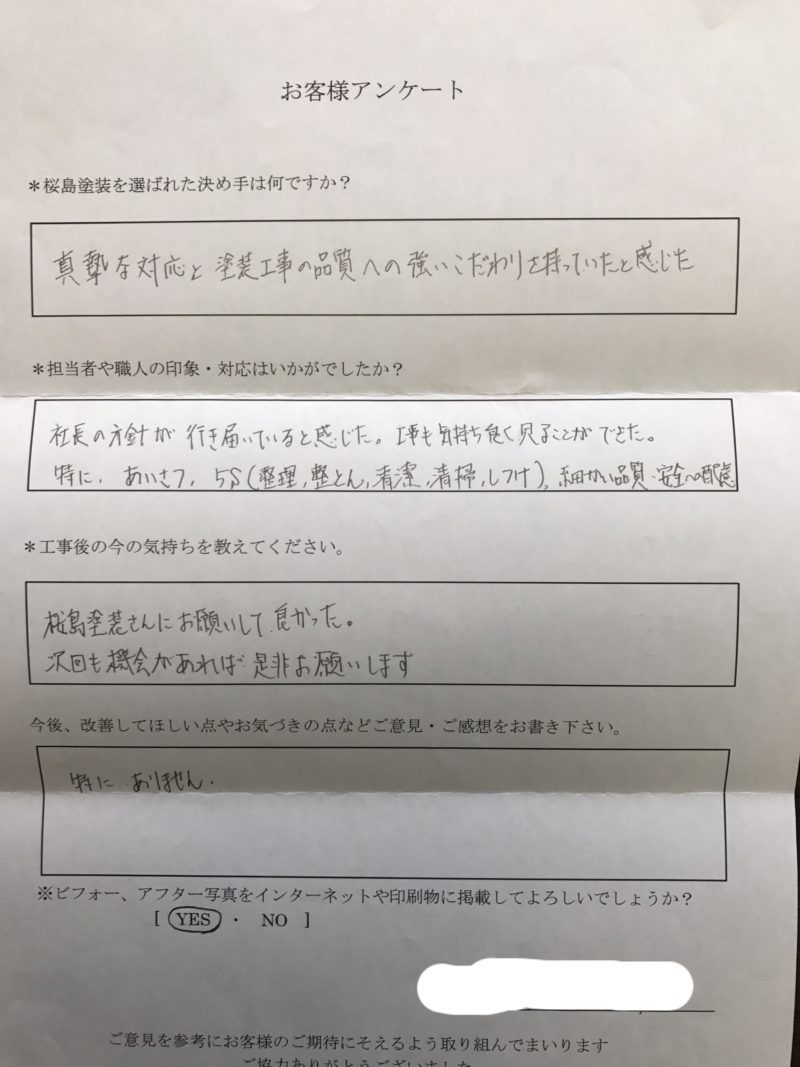 お客様アンケート
＊桜島塗装を選ばれた決め手は何ですか？
真摯な対応と塗装工事の品質への強いこだわりを持っていたと感じた
＊担当者や職人の印象・対応はいかがでしたか？
社長の方針が行き届いていると感じた。工事も気持ち良く見ることができた。
特に、あいさつ、5S(整理,整とん,清潔,清掃,しつけ)、細かい品質・安全への配慮
＊工事後の今の気持ちを教えてください。
桜島塗装さんにお願いして良かった。
次回も機会があれば是非お願いします
今後、改善してほしい点やお気づきの点などご意見・ご感想をお書き下さい。
特にありません.
※ビフォー、アフター写真をインターネットや印刷物に掲載してよろしいでしょうか？
[ YES ・ NO ]
ご意見を参考にお客様のご期待にそえるよう取り組んでまいります
ご協力ありがとうございました